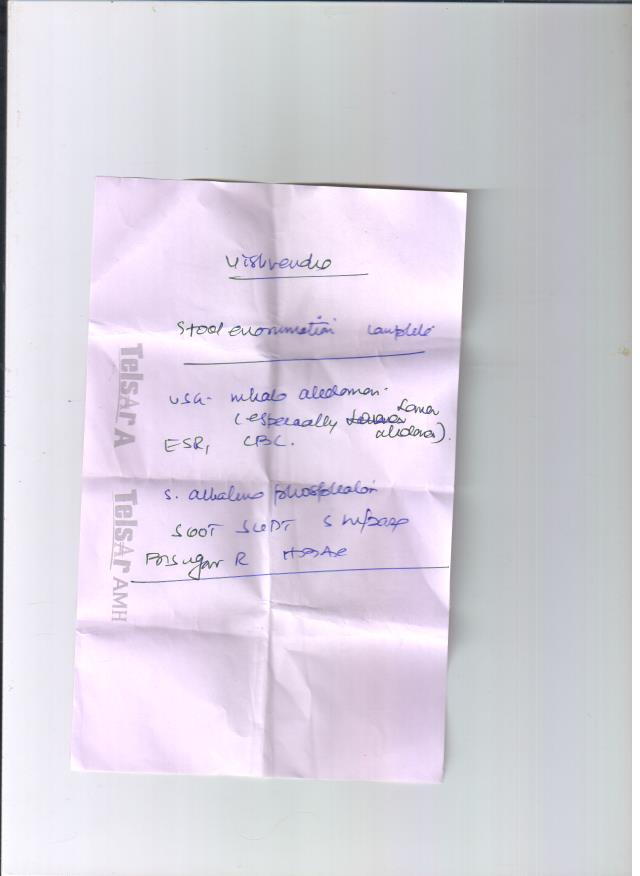 Stool examination complete
USG- whole abdomen-
(especially Lower
abdomen).
ESR, CBC.
S. alkaline phosphatase
SGOT SGPT S lipase
sugar R HbA1c
Telsar A
Telsar AMH